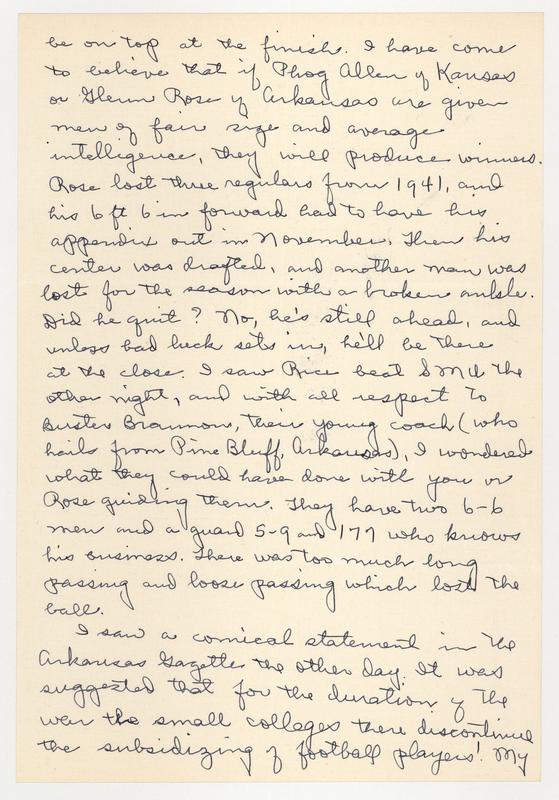 be on top at the finish. I have come
to believe that if Phog Allen of Kansas
or Glenn Rose of Arkansas are given
men of fair size and average
intelligence, they will produce winners.
Rose lost three regulars from 1941, and
his 6 ft 6 in forward had to have his
appendix out in November. Then his
center was drafted, and another man was
lost for the season with a broken ankle.
Did he quit? No, he's still ahead, and
unless bad luck sets in, he'll be there
at the close. I saw Rice beat SMU the
other night, and with all respect to
Buster Brannon, their young coach (who
hails from Pine Bluff, Arkansas), I wondered
what they could have done with you or
Rose guiding them. They have two 6-6
men and a guard 5-9 and 177 who knows
his business. There was too much long
passing and loose passing which lost the
ball.
I saw a comical statement in the
Arkansas Gazette the other day. It was
suggested that for the duration of the
war the small colleges there discontinue
the subsidizing of football players! My